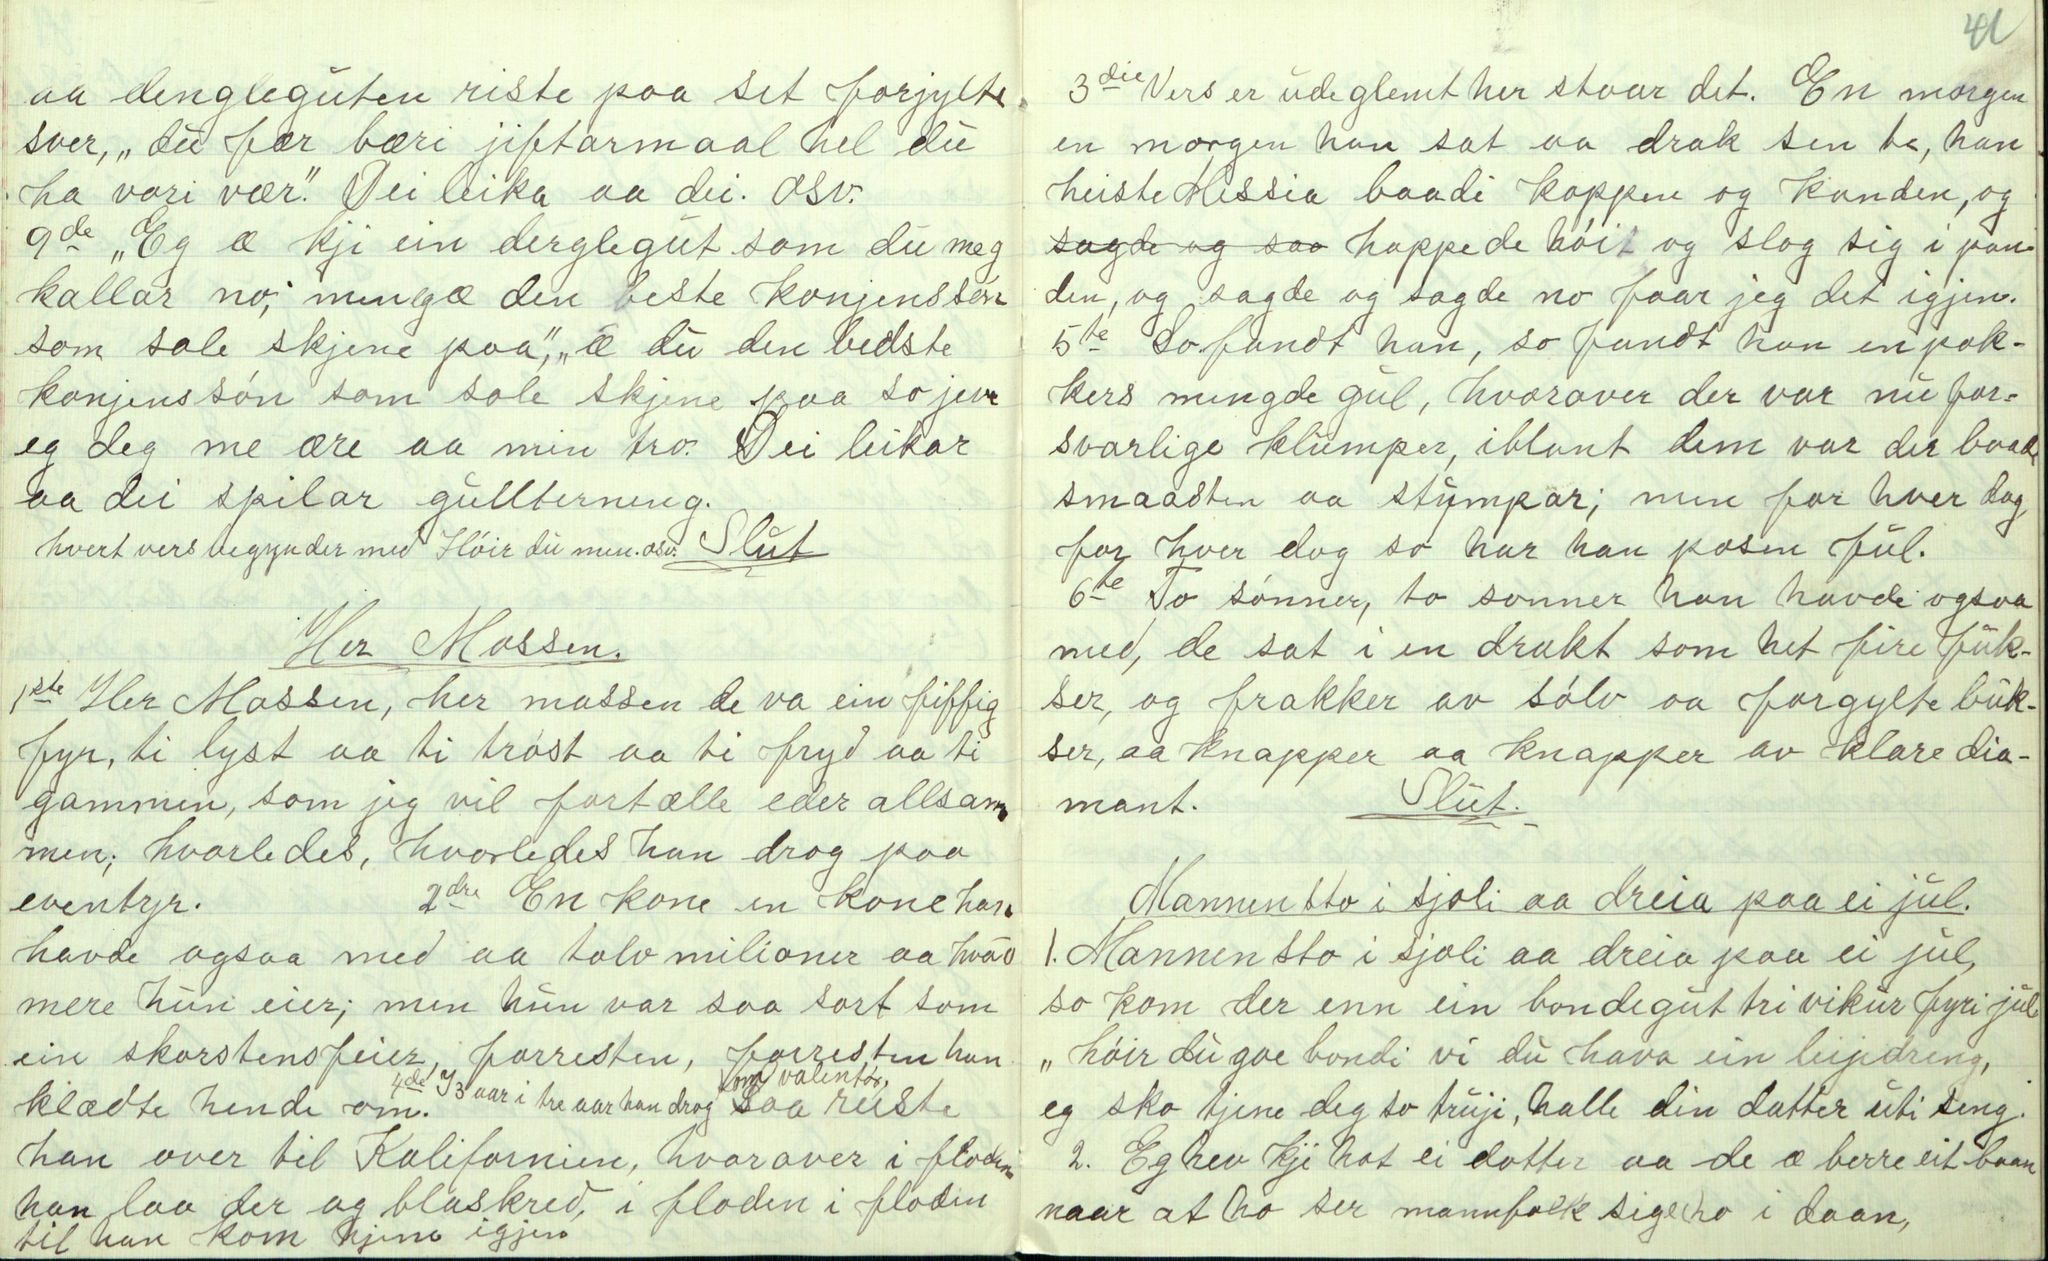 aa dengleguten riste paa set forjylte
sver, „du fær bæri jiftarmaal hel du
ha vori vær." Dei leika aa dei. osv.
9de „Eg æ kji ein derglegut som du meg
kallar no; men eg æ den beste konjenssón
som sole skjene paa", „æ du den bedste
konjenssón som sole skjene paa so jevr
eg deg me ære aa min tro. Dei leikar
aa dei spilar gullterneng.
hvert vers begynder med Hóir du men. osv. Slut
Her Massen.
1ste Her Massen, her massen de va ein fiffig
fyr, ti lyst aa ti tróst aa ti fryd aa ti
gammen, som jeg vil fortælle eder allsam-
men; hvorledes, hvorledes han drog paa
eventyr. 2dre En kone en kone han
havde ogsaa med aa tolv milioner aa hvad
mere hun eier; men hun var saa sort som
ein skorstensfeier, forresten, forresten han
klædte hende om. 4de I 3 aar i tre aar han drog som valentór, Saa reiste
han over til Kalifornien, hvorover i floden
han laa der og blaskred, i floden i floden
til han kom hjem igjen
41
3die Vers er udeglemt her staar det. En morgen
en morgen han sat aa drak sen te, han
heiste Messia baadi koppen og kanden, og
sagde og saa hoppede hóit og slog sig i pan-
den, og sagde og sagde no faar jeg det igjen.
5te So fandt han, so fandt han en pok-
kers mengde gul, hvorover der var nu for-
svarlige klumper, iblant dem var der baade
smaasten aa stumpar; men for hver dag
for hver dag so har han posen ful.
6te To sónner, to sonner han havde ogsaa
med, de sat i en drakt som het fire fuk-
ser, og frakker av sólv aa forgylte buk-
ser, aa knapper aa knapper av klare dia-
mant. Slut.
Mannen sto i sjoli aa dreia paa ei jul.
1. Mannen sto i sjoli aa dreia paa ei jul,
so kom der enn ein bondegut tri vikur fyri jul
„ hóir du goe bondi vi du hava ein leijedreng,
eg sko tjene deg so truji, halle din datter uti seng.
2. Eg hev kji hat ei dotter aa de æ berre eit baan
naar at ho ser mannfolk sige ho i daan,